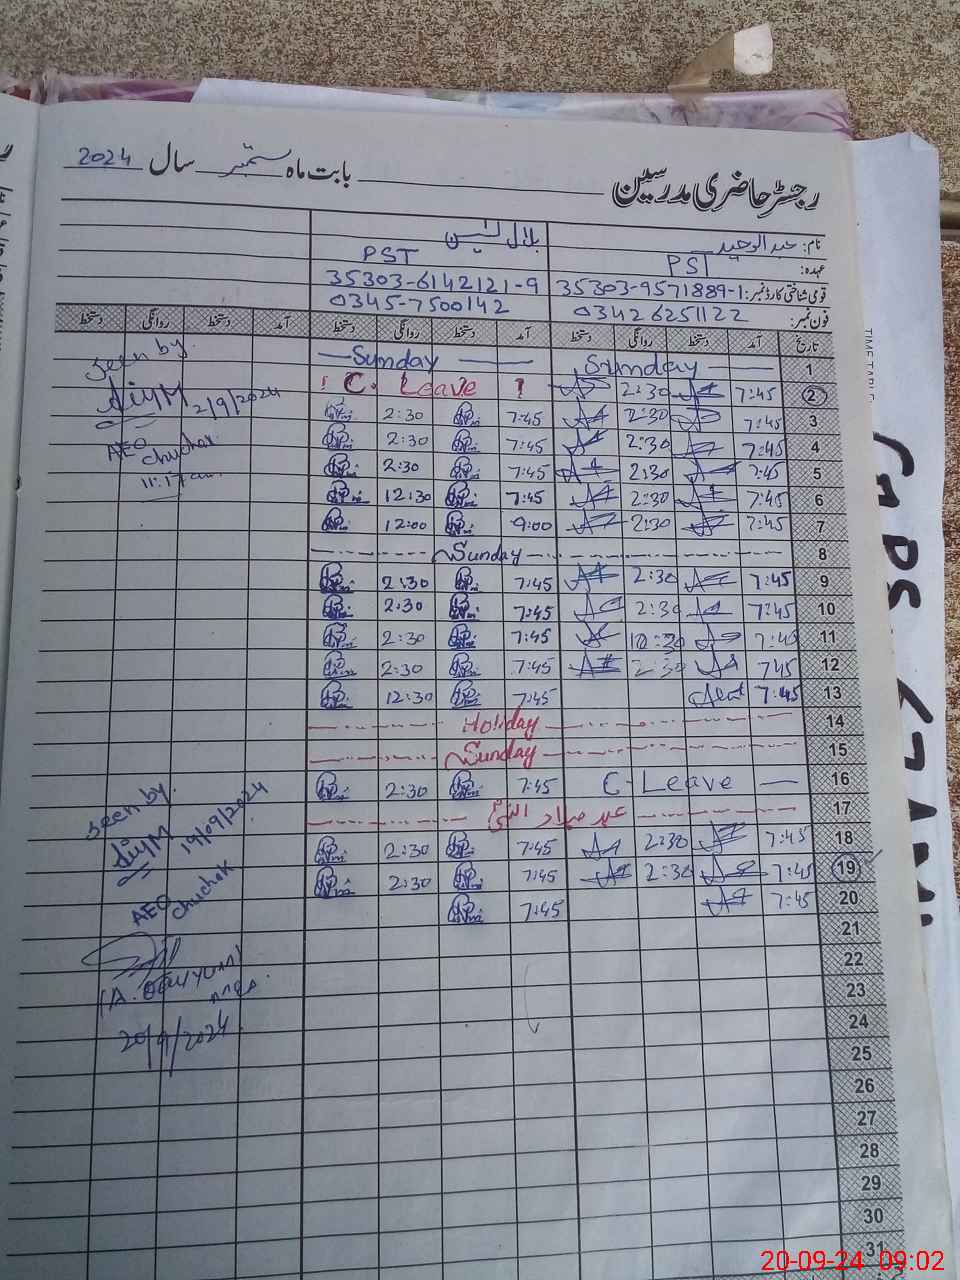 رجسٹر حاضری مدرسین بابت ماہ ستمبر سال 2024
نام: عبدالوحید بلال
عہدہ: PST PST
قومی شناختی کارڈ نمبر: 35303-9571889-1 35303-6142121-9
فون نمبر: 03426251122 0345-7500142
تاریخ آمد دستخط روانگی دستخط آمد دستخط روانگی دستخط آمد دستخط روانگی دستخط
1 Sunday Sunday
2 7:45 2:30 C. Leave
3 7:45 2:30 7:45 2:30
4 7:45 2:30 7:45 2:30
5 7:45 2:30 7:45 2:30
6 7:45 2:30 7:45 12:30
7 7:45 2:30 9:00 12:00
8 Sunday
9 7:45 2:30 7:45 2:30
10 7:45 2:30 7:45 2:30
11 2:30 7:45
12 7:45 2:30 7:45 2:30
13 7:45 7:45 12:30
14 Holiday
15 Sunday
16 C-Leave 7:45 2:30
17 عید میلاد النبیؐ
18 7:45 2:30 7:45 2:30
19 7:45 2:30 7:45 2:30
20 7:45 7:45
21
22
23
24
25
26
27
28
29
30
31
seen by
2/9/2024
AEO
chuchak
11:17 am
seen by
19/09/2024
AEO
chuchak
20/9/2024
TIME TABLE
20-09-24 09:02